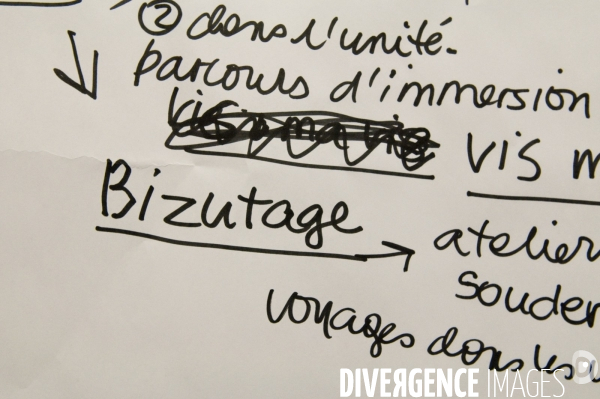 ② dans l'unité.
parcours d'immersion
vis ma vie
vis m
Bizutage → atelier
souder
voyages dans les
DIVERGENCE IMAGES